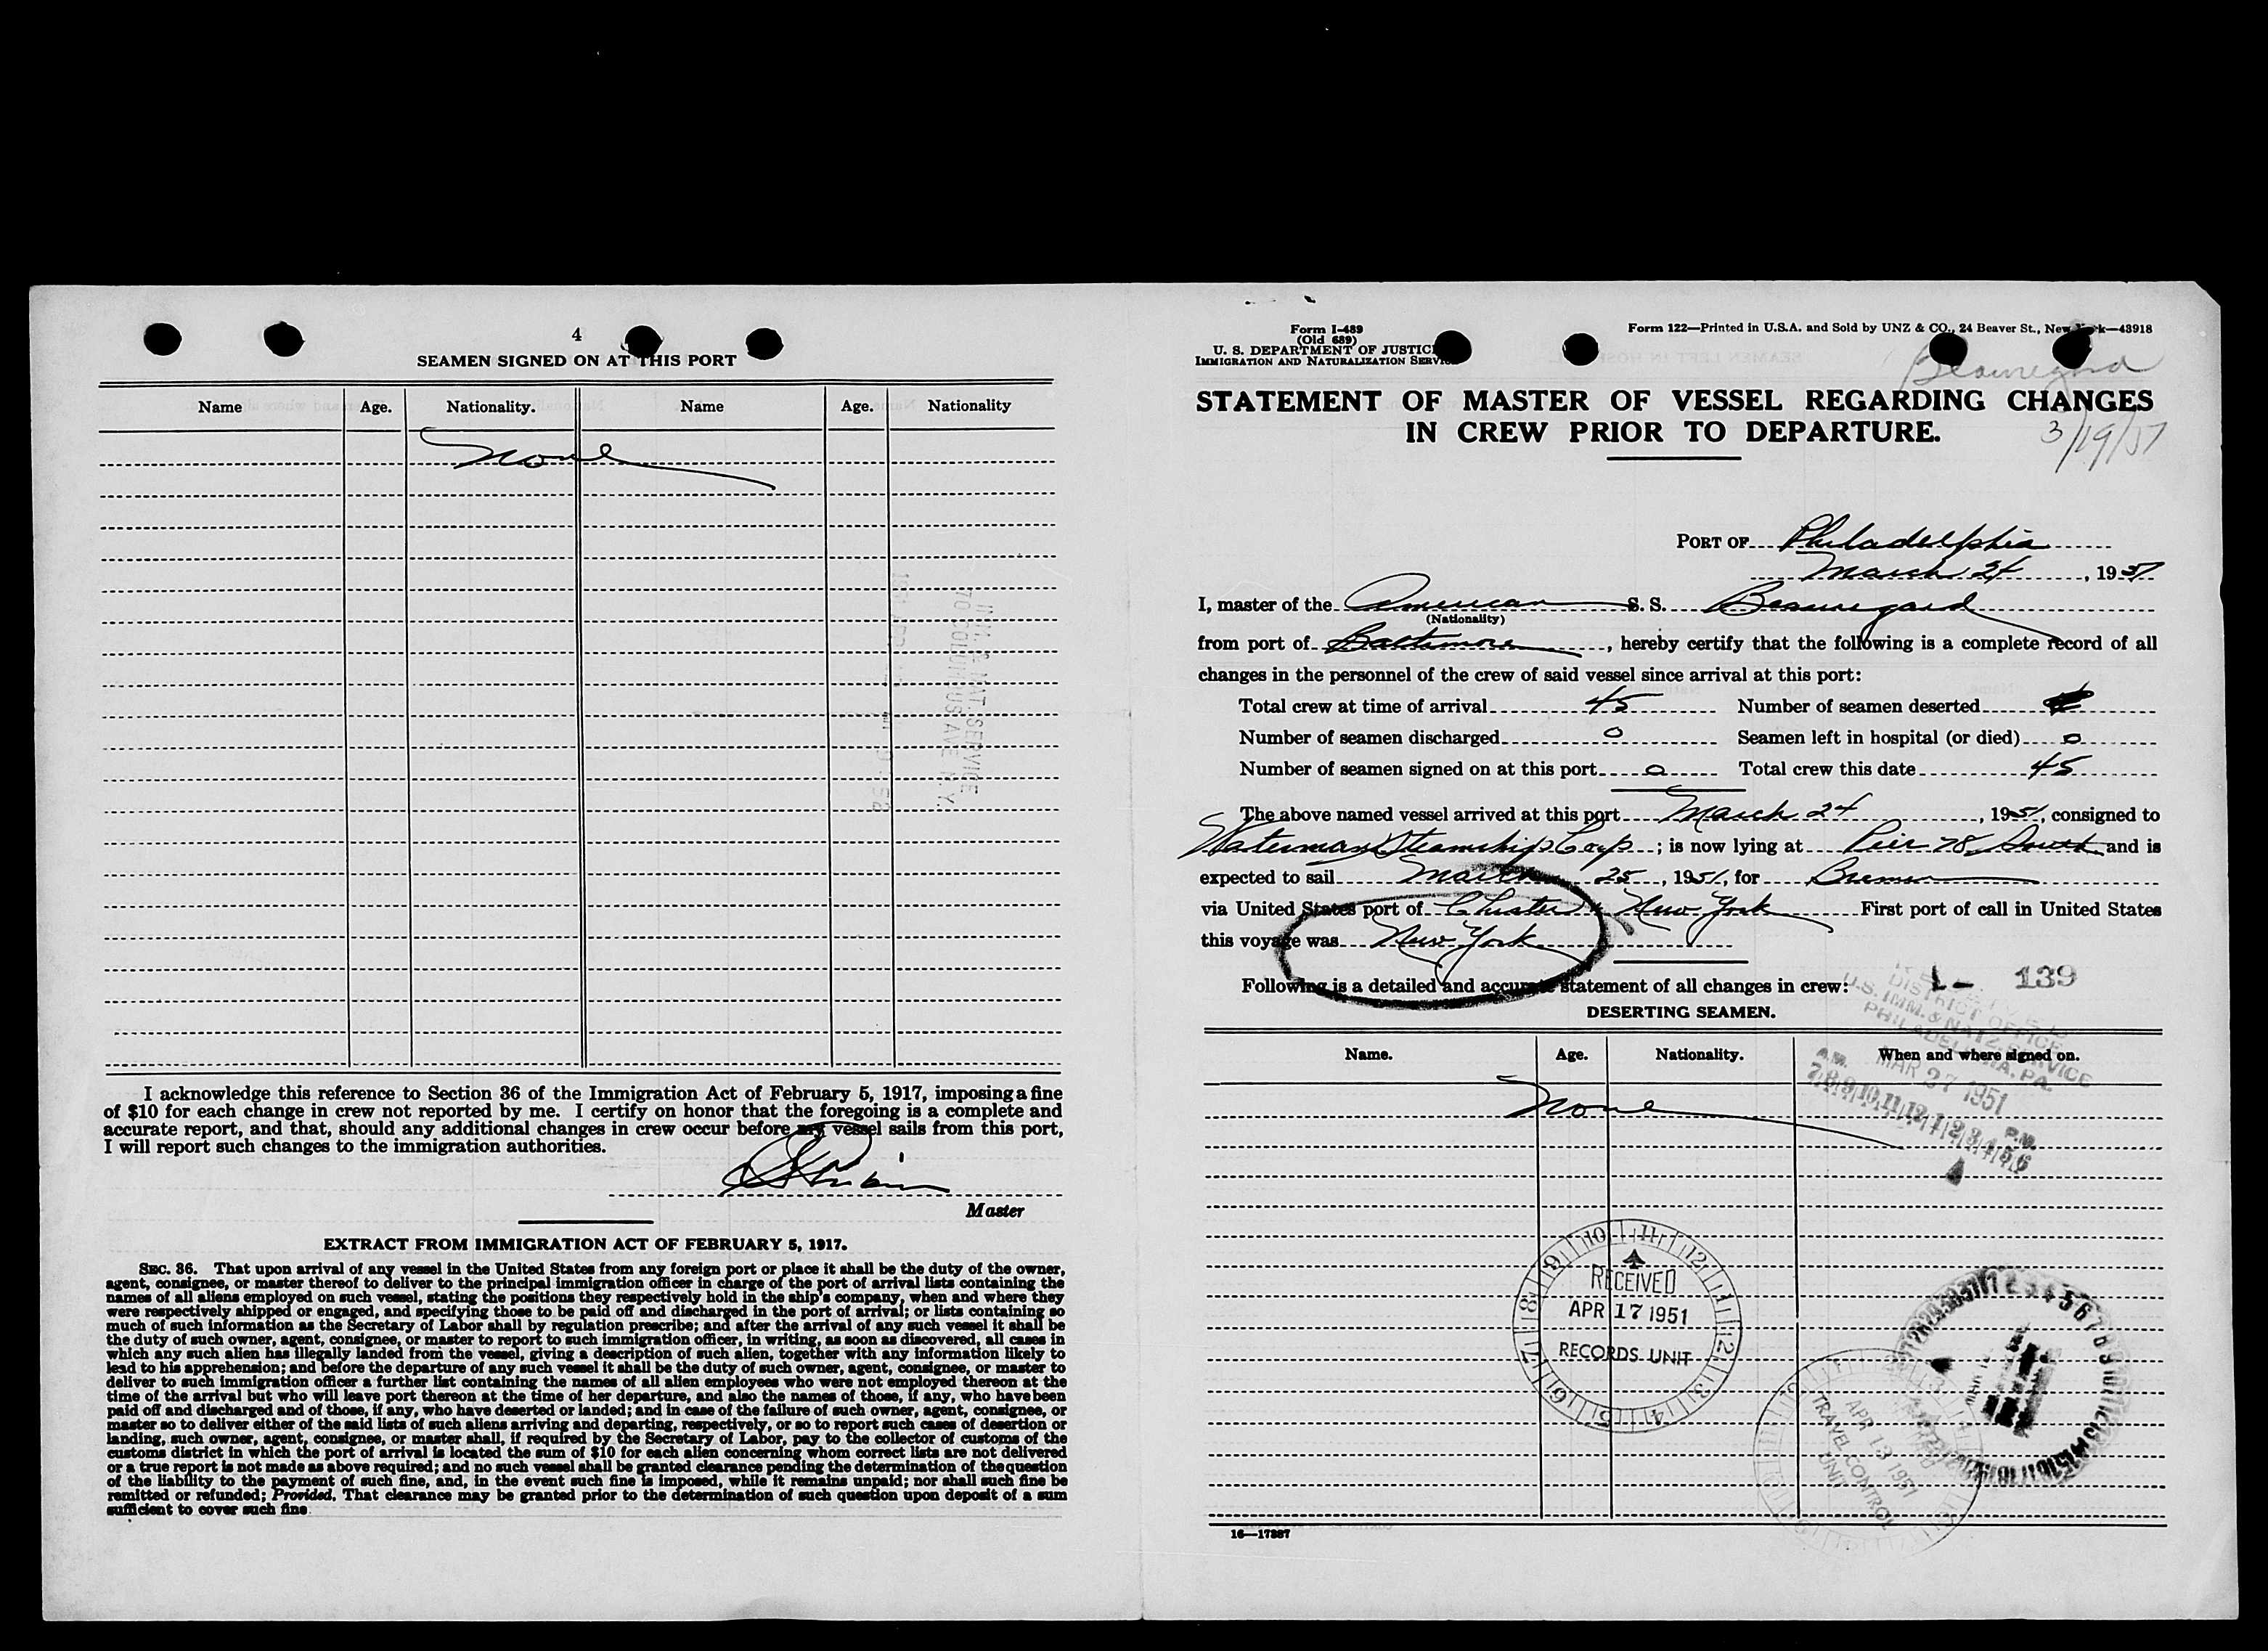 4
SEAMEN SIGNED ON AT THIS PORT
Name Age. Nationality. Name Age. Nationality
None
I acknowledge this reference to Section 36 of the Immigration Act of February 5, 1917, imposing a fine
of $10 for each change in crew not reported by me. I certify on honor that the foregoing is a complete and
accurate report, and that, should any additional changes in crew occur before my vessel sails from this port,
I will report such changes to the immigration authorities.
Master
EXTRACT FROM IMMIGRATION ACT OF FEBRUARY 5, 1917.
SEC. 36. That upon arrival of any vessel in the United States from any foreign port or place it shall be the duty of the owner,
agent, consignee, or master thereof to deliver to the principal immigration officer in charge of the port of arrival lists containing the
names of all aliens employed on such vessel, stating the positions they respectively hold in the ship's company, when and where they
were respectively shipped or engaged, and specifying those to be paid off and discharged in the port of arrival; or lists containing so
much of such information as the Secretary of Labor shall by regulation prescribe; and after the arrival of any such vessel it shall be
the duty of such owner, agent, consignee, or master to report to such immigration officer, in writing, as soon as discovered, all cases in
which any such alien has illegally landed from the vessel, giving a description of such alien, together with any information likely to
lead to his apprehension; and before the departure of any such vessel it shall be the duty of such owner, agent, consignee, or master to
deliver to such immigration officer a further list containing the names of all alien employees who were not employed thereon at the
time of the arrival but who will leave port thereon at the time of her departure, and also the names of those, if any, who have been
paid off and discharged and of those, if any, who have deserted or landed; and in case of the failure of such owner, agent, consignee, or
master so to deliver either of the said lists of such aliens arriving and departing, respectively, or so to report such cases of desertion or
landing, such owner, agent, consignee, or master shall, if required by the Secretary of Labor, pay to the collector of customs of the
customs district in which the port of arrival is located the sum of $10 for each alien concerning whom correct lists are not delivered
or a true report is not made as above required; and no such vessel shall be granted clearance pending the determination of the question
of the liability to the payment of such fine, and, in the event such fine is imposed, while it remains unpaid; nor shall such fine be
remitted or refunded; Provided, That clearance may be granted prior to the determination of such question upon deposit of a sum
sufficient to cover such fine
Form I-489
(Old 689)
U. S. DEPARTMENT OF JUSTICE
IMMIGRATION AND NATURALIZATION SERVICE
Form 122—Printed in U.S.A. and Sold by UNZ & CO., 24 Beaver St., New York—43918
Beauregard
STATEMENT OF MASTER OF VESSEL REGARDING CHANGES
IN CREW PRIOR TO DEPARTURE.
3/19/51
PORT OF Philadelphia
March 24, 1951
I, master of the American S. S. Beauregard
(Nationality)
from port of Baltimore, hereby certify that the following is a complete record of all
changes in the personnel of the crew of said vessel since arrival at this port:
Total crew at time of arrival 45 Number of seamen deserted
Number of seamen discharged 0 Seamen left in hospital (or died) 0
Number of seamen signed on at this port 0 Total crew this date 45
The above named vessel arrived at this port March 24, 1951, consigned to
Waterman Steamship Corp; is now lying at Pier 78 South and is
expected to sail March 25, 1951, for Bremen
via United States port of Chester New York First port of call in United States
this voyage was New York
Following is a detailed and accurate statement of all changes in crew: 139
DISTRICT OFFICE
U.S. IMM. & NATZ. SERVICE
PHILADELPHIA, PA.
MAR 27 1951
A.M. P.M.
7 8 9 10 11 12 1 2 3 4 5 6
DESERTING SEAMEN.
Name. Age. Nationality. When and where signed on.
None
RECEIVED
APR 17 1951
RECORDS UNIT
APR 13 1951
TRAVEL CONTROL
UNIT
16—17387